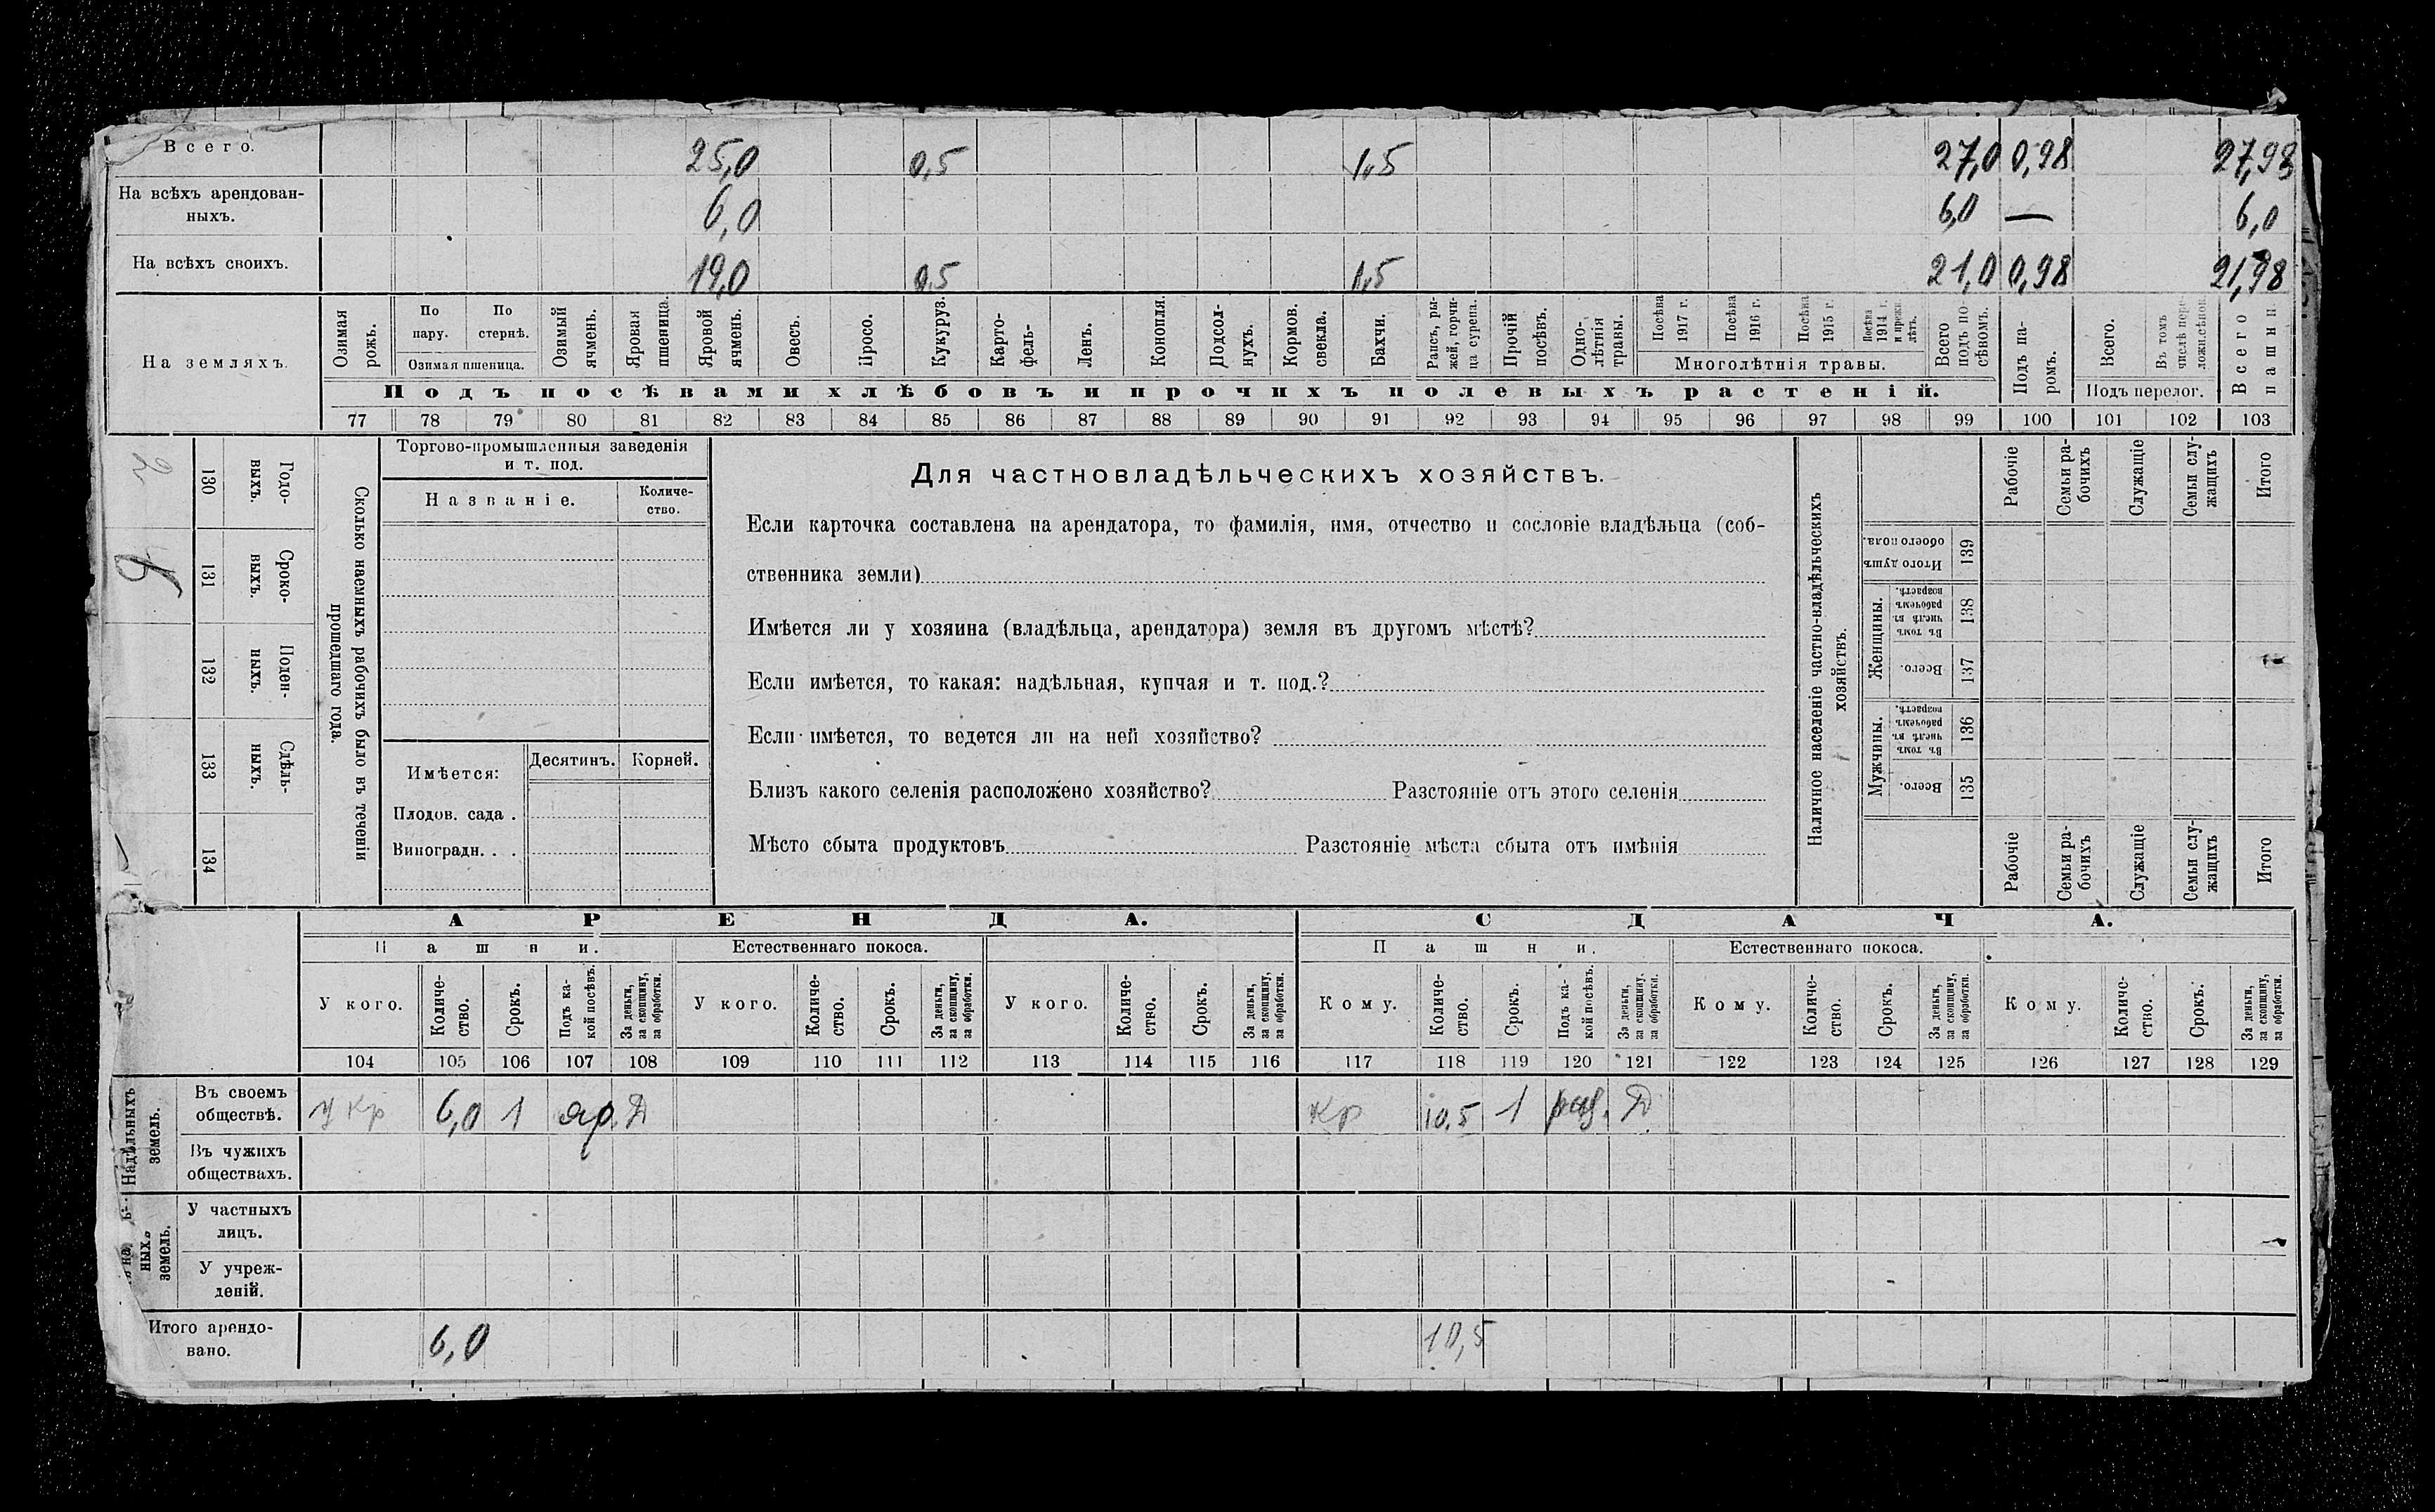 Всего. 25,0 0,5 1,5 27,0 0,98 27,98
На всѣхъ арендован-
ныхъ. 6,0 6,0 — 6,0
На всѣхъ своихъ. 19,0 0,5 1,5 21,0 0,98 21,98
На земляхъ.
Озимая рожь.
По пару.
По стернѣ.
Озимая пшеница.
Озимый ячмень.
Яровая пшеница.
Яровой ячмень.
Овесъ.
Просо.
Кукуруз.
Карто-
фель-
Ленъ.
Конопля.
Подсол-
нухъ.
Кормов. свекла.
Бахчи.
Рапсъ, ры-
жей, горчи-
ца сурепа.
Прочій посѣвъ.
Одно-
лѣтнія травы.
Посѣва 1917 г.
Посѣва 1916 г.
Посѣва 1915 г.
Посѣва 1914 г. и прежн. лѣтъ.
Многолѣтнія травы.
Всего подъ по-
сѣвомъ.
Подъ па-
ромъ.
Всего.
Въ томъ числѣ пер. ложн.сѣнок.
Подъ перелог.
Всего пашни
Подъ посѣвами хлѣбовъ и прочихъ полевыхъ растеній.
77 78 79 80 81 82 83 84 85 86 87 88 89 90 91 92 93 94 95 96 97 98 99 100 101 102 103
130 Годо-
выхъ.
131 Сроко-
ныхъ.
132 Поден-
ныхъ.
133 Сдѣль-
ныхъ.
134
Сколько наемныхъ рабочихъ было въ теченіи
прошедшаго года.
Торгово-промышленныя заведенія
и т. под.
Названіе. Количе-
ство.
Имѣется: Десятинъ. Корней.
Плодов. сада .
Виноградн. . .
Для частновладѣльческихъ хозяйствъ.
Если карточка составлена на арендатора, то фамилія, имя, отчество и сословіе владѣльца (соб-
ственника земли)
Имѣется ли у хозяина (владѣльца, арендатора) земля въ другомъ мѣстѣ?
Если имѣется, то какая: надѣльная, купчая и т. под.?
Если имѣется, то ведется ли на ней хозяйство?
Близъ какого селенія расположено хозяйство? Разстояніе отъ этого селенія
Мѣсто сбыта продуктовъ Разстояніе мѣста сбыта отъ имѣнія
Наличное населеніе частно-владѣльческихъ
хозяйствъ.
Рабочіе
Семьи ра-
бочихъ
Служащіе
Семьи слу-
жащихъ
Итого
Итого душъ обоего пола. 139
Женщины.
Въ томъ числѣ въ рабочемъ возрастѣ. 138
Всего. 137
Мужчины.
Въ томъ числѣ въ рабочемъ возрастѣ. 136
Всего. 135
Рабочіе
Семьи ра-
бочихъ
Служащіе
Семьи слу-
жащихъ
Итого
АРЕНДА. СДАЧА.
Пашни. Естественнаго покоса. Пашни. Естественнаго покоса.
У кого. Количе-
ство. Срокъ. Подъ ка-
кой посѣвъ. За деньги, за скопщину, за обработки.
У кого. Количе-
ство. Срокъ. За деньги, за скопщину, за обработки.
У кого. Количе-
ство. Срокъ. За деньги, за скопщину, за обработки.
Кому. Количе-
ство. Срокъ. Подъ ка-
кой посѣвъ. За деньги, за скопщину, за обработки.
Кому. Количе-
ство. Срокъ. За деньги, за скопщину, за обработки.
Кому. Количе-
ство. Срокъ. За деньги, за скопщину, за обработки.
104 105 106 107 108 109 110 111 112 113 114 115 116 117 118 119 120 121 122 123 124 125 126 127 128 129
Надѣльныхъ земель.
Въ своемъ
обществѣ. у Кр 6,0 1 яр. Д Кр 10,5 1 Д
Въ чужихъ
обществахъ.
ныхъ земель.
У частныхъ
лицъ.
У учреж-
деній.
Итого арендо-
вано. 6,0 10,5